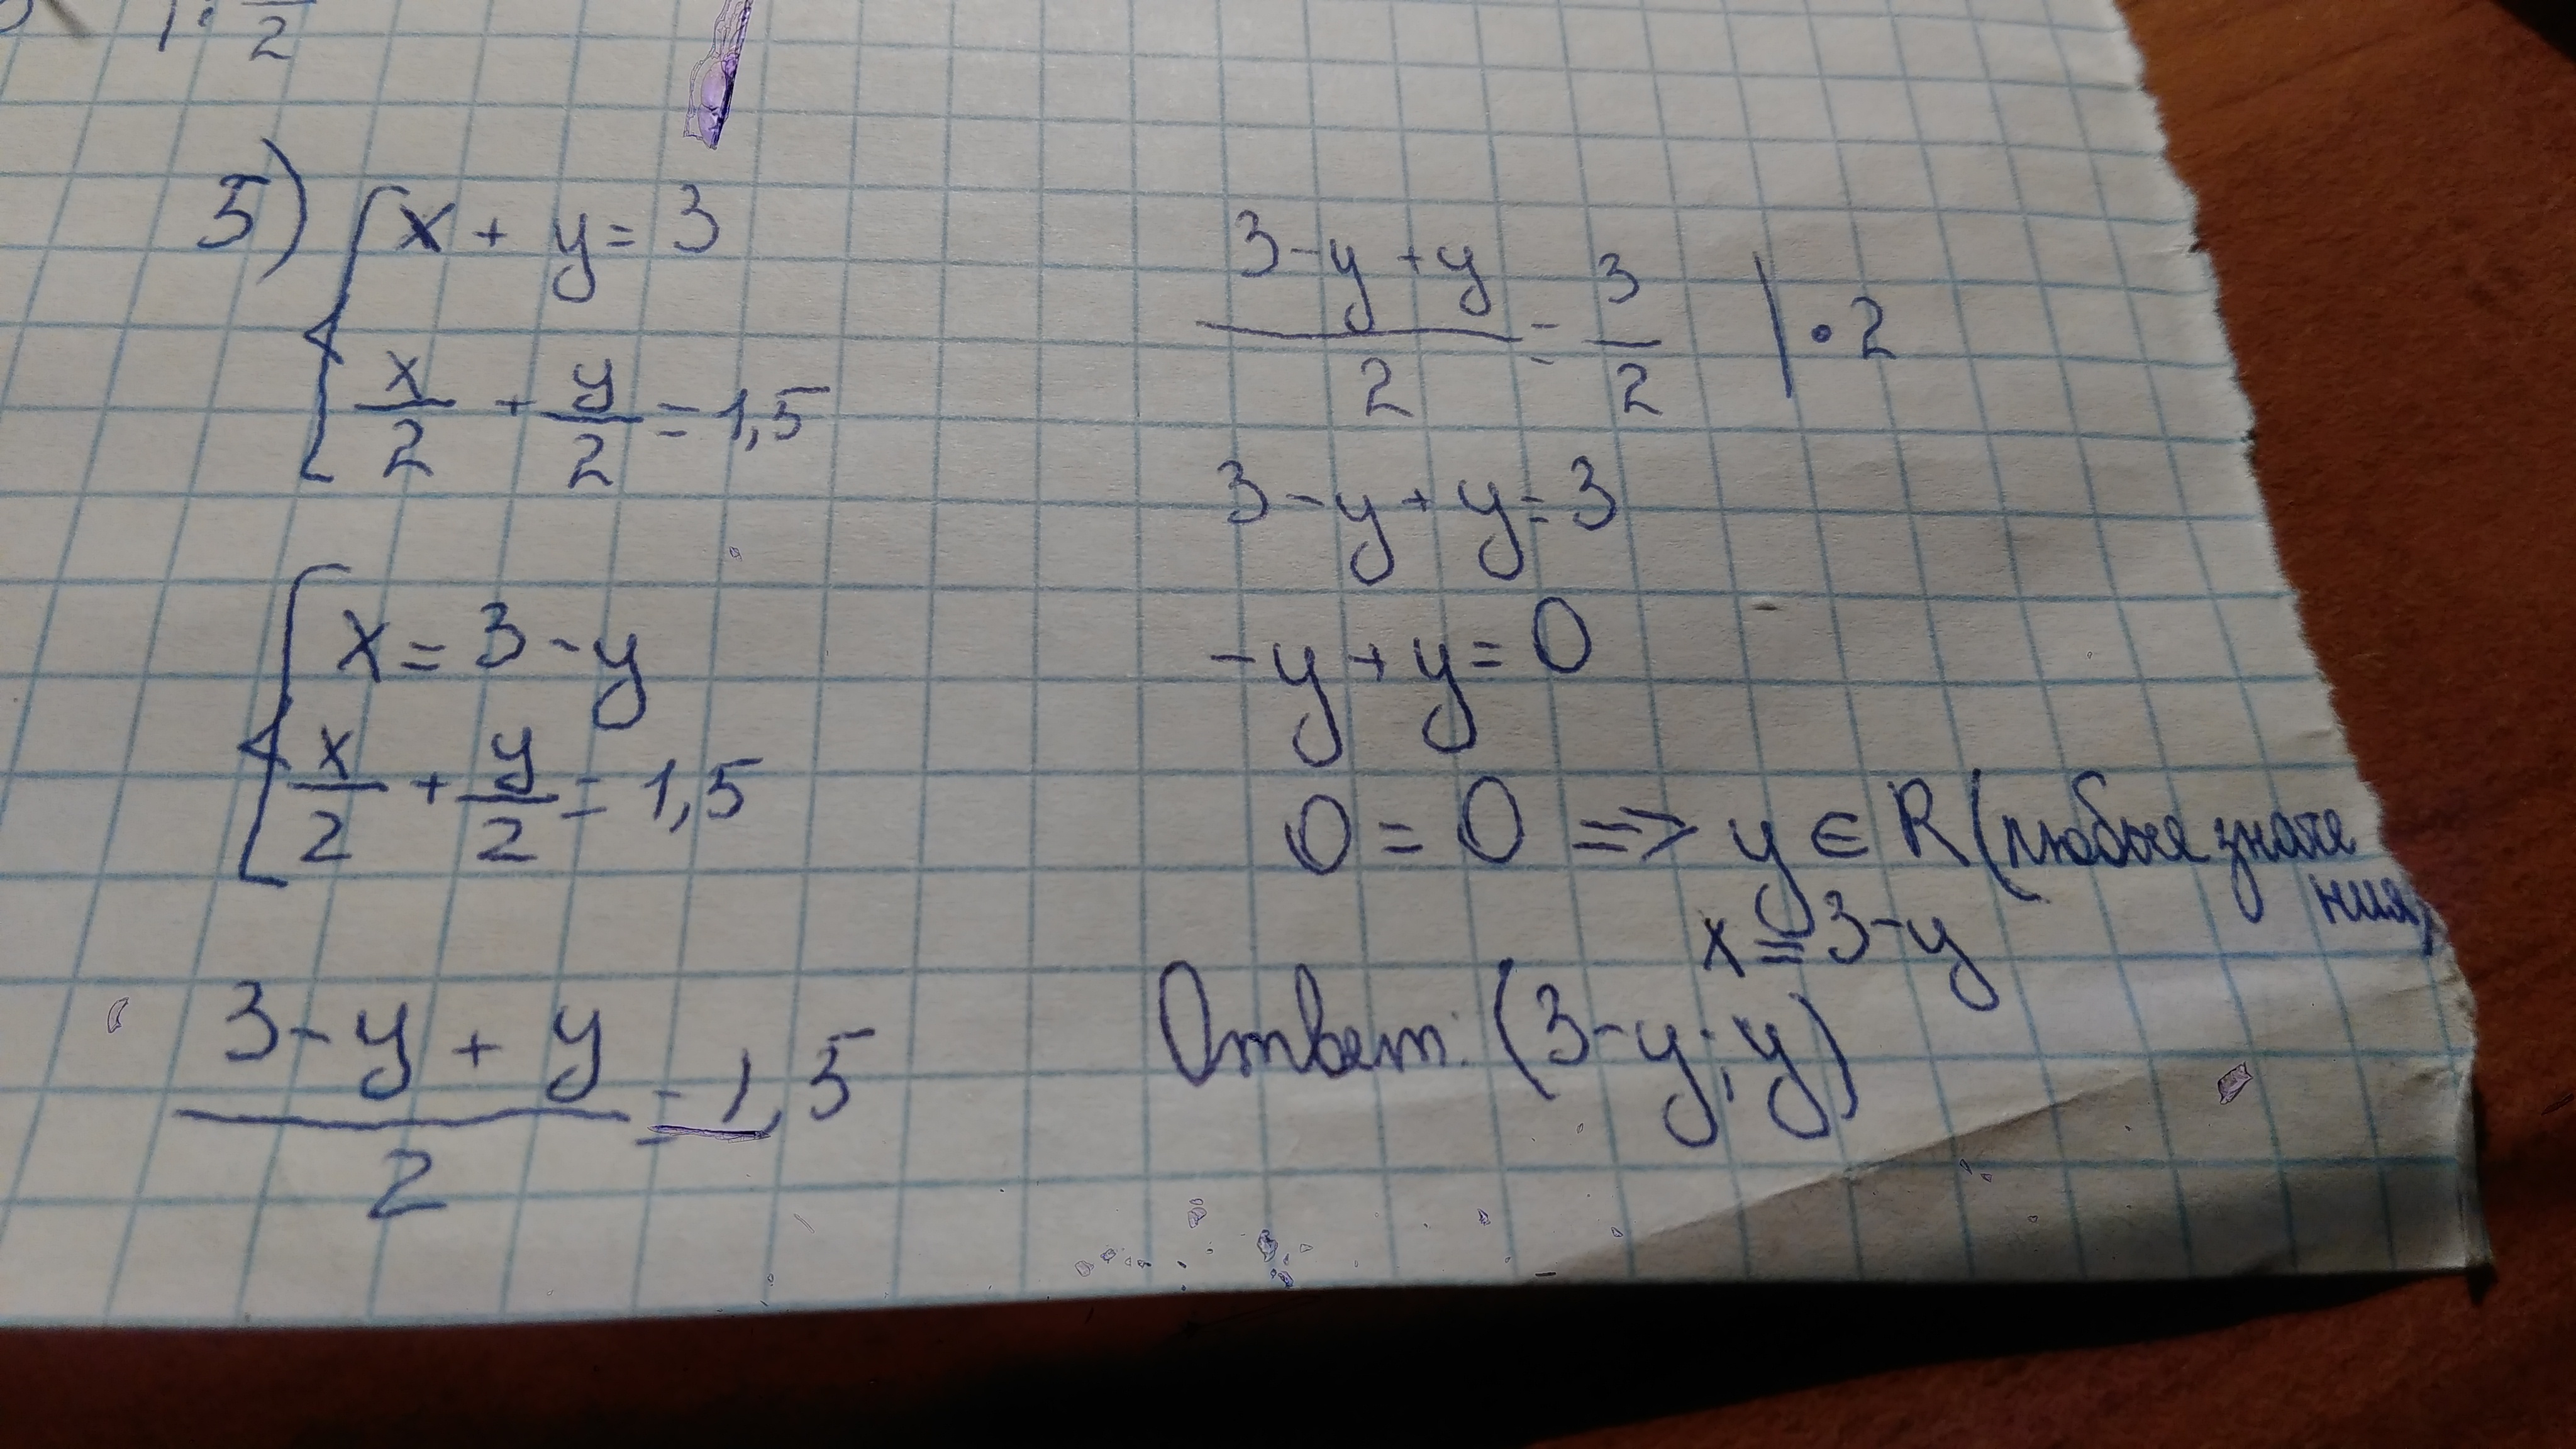 5) { x + y = 3
x/2 + y/2 = 1,5
{ x = 3 - y
x/2 + y/2 = 1,5
(3 - y + y)/2 = 1,5
(3 - y + y)/2 = 3/2 | • 2
3 - y + y = 3
- y + y = 0
0 = 0 => y ∈ R (любые значе
ния)
x = 3 - y
Ответ: (3 - y; y)